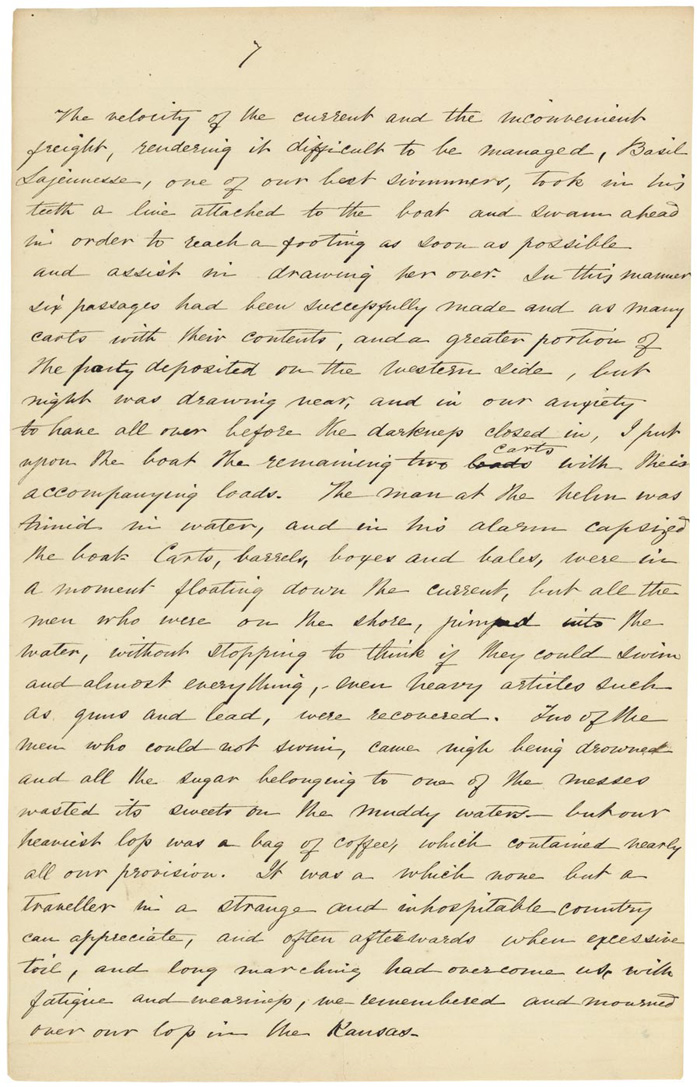 7
The velocity of the current and the inconvenient
freight, rendering it difficult to be managed, Basil
Lajeunesse, one of our best swimmers, took in his
teeth a line attached to the boat and swam ahead
in order to reach a footing as soon as possible
and assist in drawing her over. In this manner
six passages had been successfully made and as many
carts with their contents, and a greater portion of
the party deposited on the western side, but
night was drawing near, and in our anxiety
to have all over before the darkness closed in, I put
carts
upon the boat the remaining two loads with their
accompanying loads. The man at the helm was
timid in water, and in his alarm capsized
the boat. Carts, barrels, boxes and bales, were in
a moment floating down the current, but all the
men who were on the shore, jumped into the
water, without stopping to think if they could swim
and almost everything, - even heavy articles such
as guns and lead, were recovered. Two of the
men who could not swim, came nigh being drowned
and all the sugar belonging to one of the messes
wasted its sweets on the muddy waters. - but our
heaviest loss was a bag of coffee, which contained nearly
all our provision. It was a which none but a
traveller in a strange and inhospitable country
can appreciate, and often afterwards when excessive
toil, and long marching had overcome us, with
fatigue and weariness, we remembered and mourned
over our loss in the Kansas.